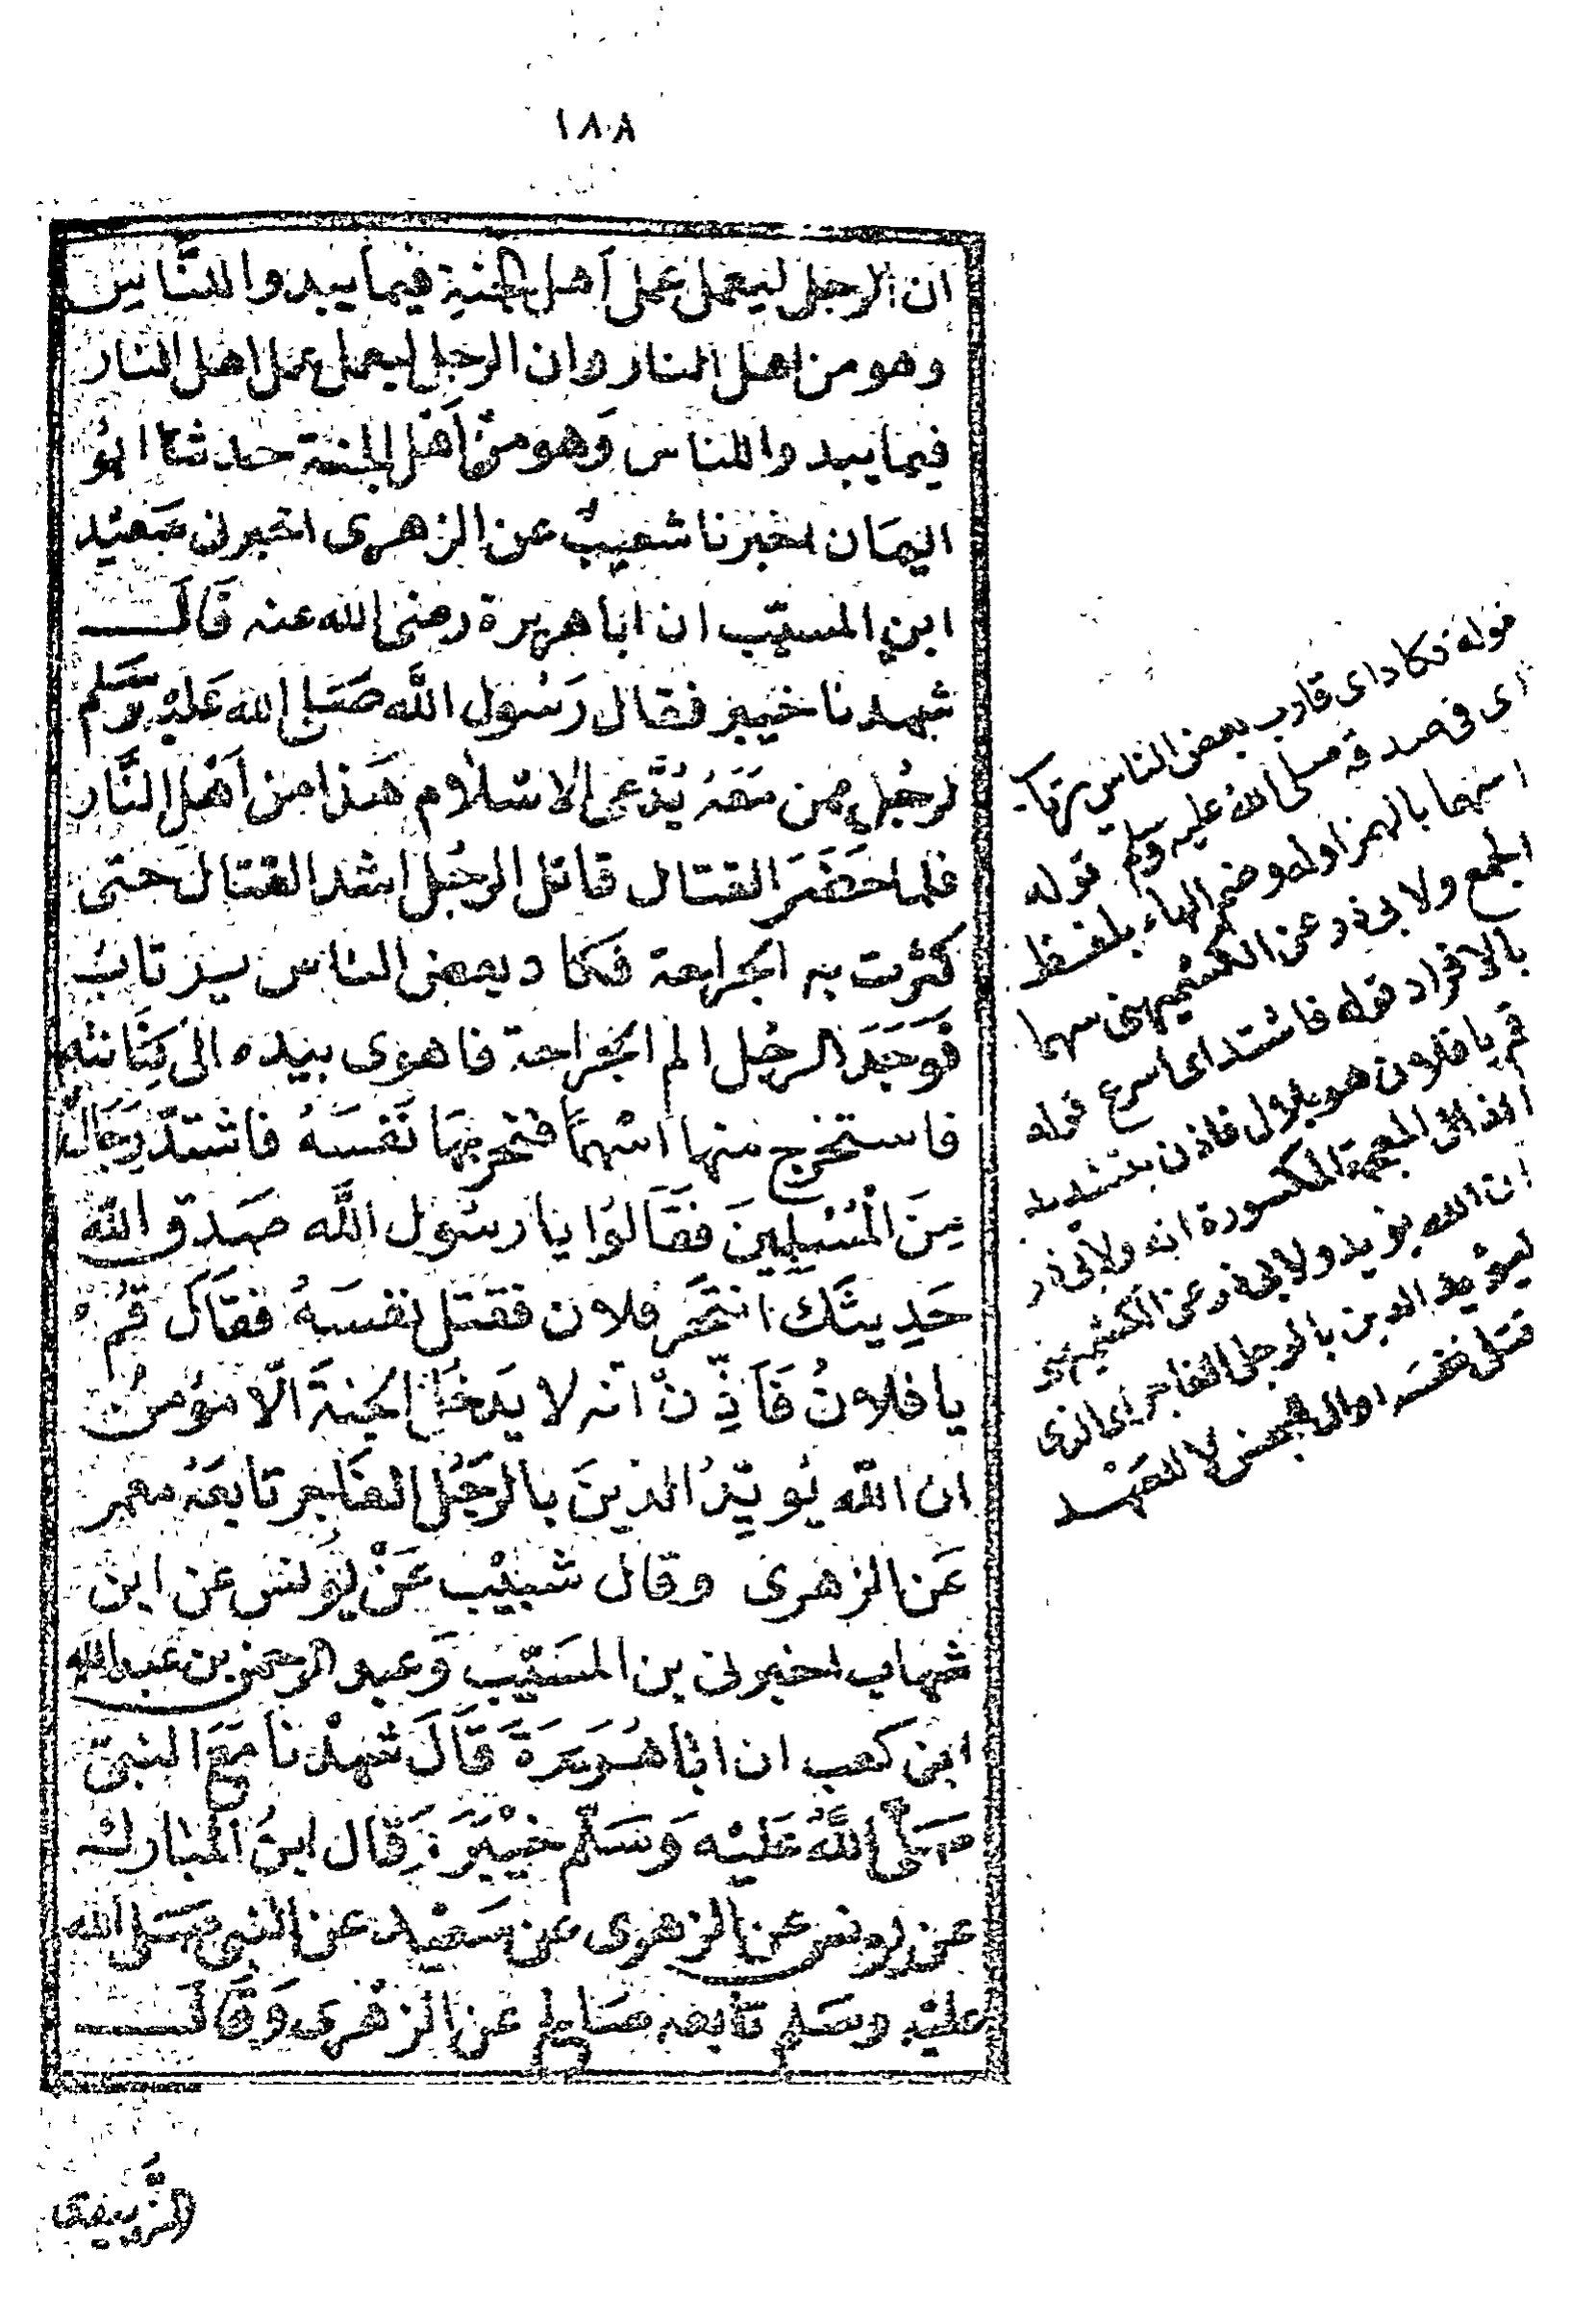 ١٨٨
ان الرجل ليعمل عمل أهل الجنة فيما يبدو للناس
وهو من اهل النار وان الرجل ليعمل عمل اهل النار
فيما يبدو للناس وَهو من أهْل الجنة حدثنا ابو
اليمان اخبرنا شعيبٌ عن الزهرى اخبرنى سَعيْد
ابن المسيّب ان ابا هريرة رضى الله عنه قَالَ
شهدنا خيبر فقال رَسُول اللَّه صَلى الله عَليْه وَسَلم
لرجُل ممن مَعَهُ يُدَّعى الاسْلام هَذا من اَهْل النَّار
فلما حَضَرَ القتال قاتل الرجُل اشد القتال حتى
كثرت به الجراحة فكاد بعض الناس يرتاب
فَوَجَدَ الرجُل الم الجراحة فاهوى بيده الى كِنَانته
فاستخرج منها اسْهمًا فنحر بهَا نَفسَهُ فاشتدَّ رجَالٌ
مِنَ الْمُسْلِمِينَ فقَالوُا يا رسَول اللَّه صَدق الله
حَدِيثَك انتحَر فلان فقتل نفسَهُ فقَالَ قُمْ
يا فلانُ فَأَذِّنْ انّه لا يَدخُل الجنةَ الّا مؤمنٌ
ان اللّه يُويّدُ الدينَ بالرجُل الفَاجر تابعَهُ معمر
عَن الزهرى وقال شبيْب عَنْ يوُنس عن ابن
شهاب اخبرنى بن المسَيّب وَعبد الرحمن بن عبد الله
ابن كعب ان ابا هُرَيرَةَ قَالَ شهدْنا مَعَ النبىّ
صَلّى اللَّهُ عَليْه وَسَلّم خيْبَرَ وَقال ابنُ المبارك
عن يونس عن الزهرى عن سَعيْد عن النبى صَلى الله
عليْه وسَلم تابعه صَالح عَن الزهْرى وَقَالَ
الزُّبيدى
قوله فكاد اى قارب بعض الناس يرتاب
اى فى صدقه صلى الله عليه وسلم قوله
اسهما بالهمز اوله وضم الهاء بلفظ
الجمع ولابى ذر عن الكشميهنى سهما
بالافراد قوله فاشتد اى اسرع قوله
قم يا فلان هو بلال فاذن بتشديد
الذال المعجمة المكسورة انه ولابى ذر
ان الله يؤيد ولابى ذر عن الكشميهنى
ليؤيد الدين بالرجل الفاجر اى الذى
قتل نفسه او ال للجنس لا للعَهْد